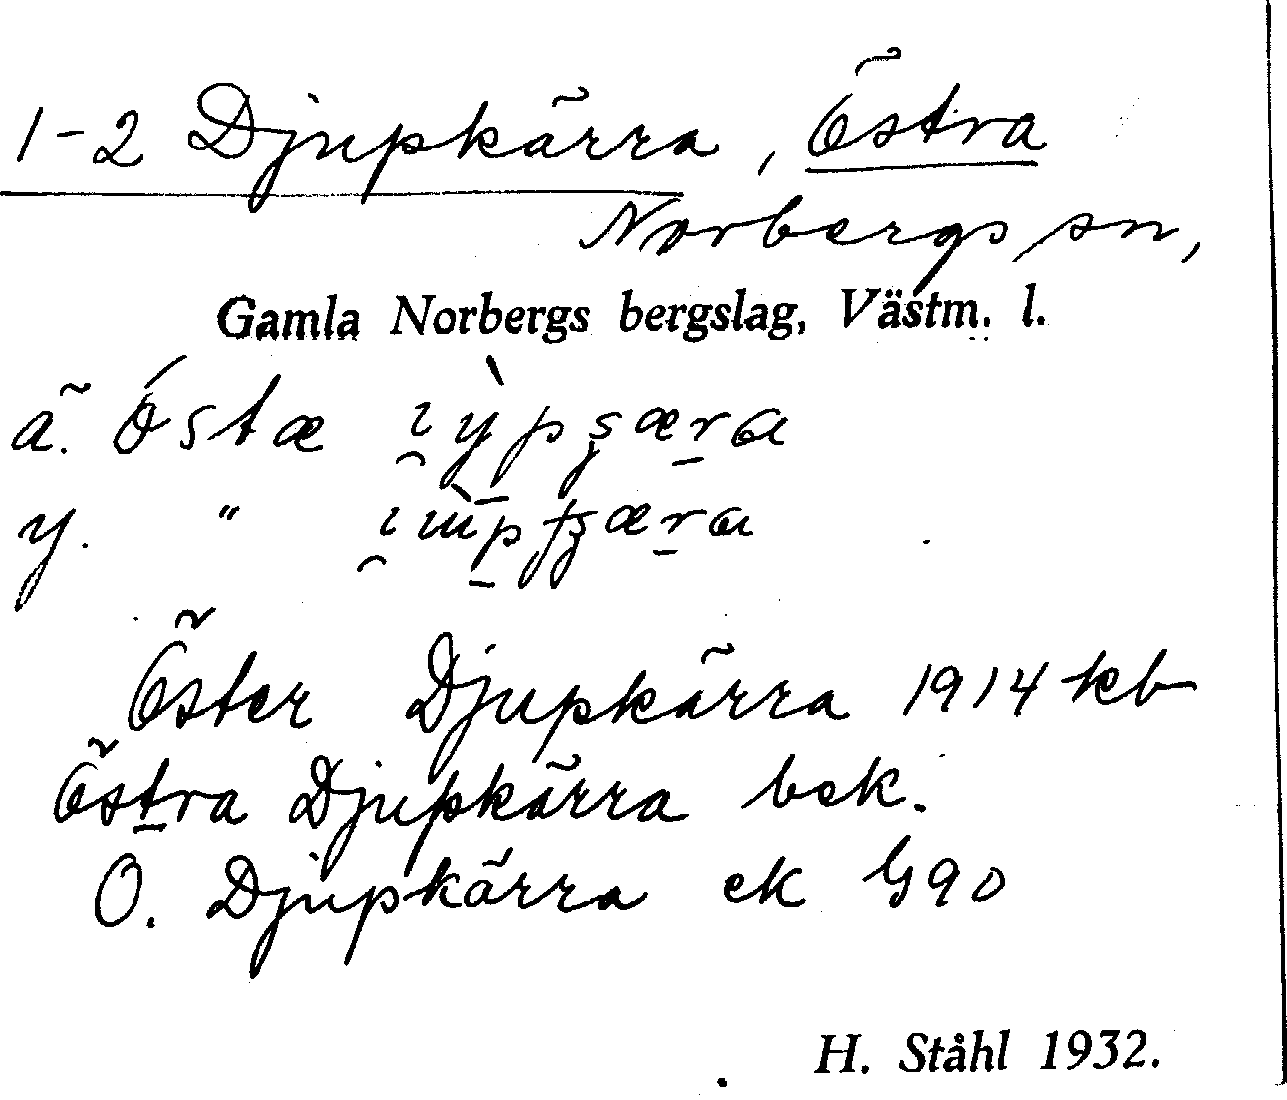 1-2 Djupkärra, Östra
Norbergs sn,
Gamla Norbergs bergslag, Västm. l.
ä. östæ
y. "
Öster Djupkärra 1914 kb
Östra Djupkärra bek.
Ö. Djupkärra ek G90
H. Ståhl 1932.